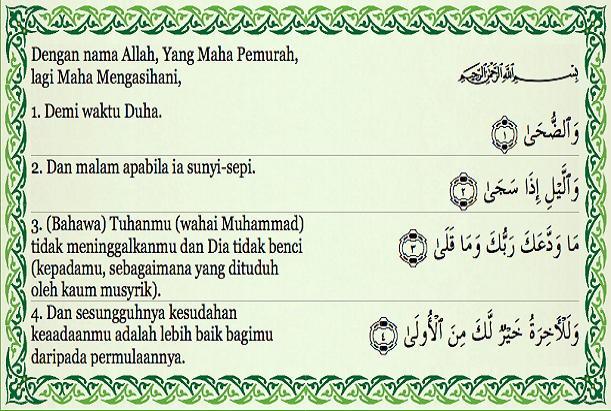 Dengan nama Allah, Yang Maha Pemurah,
lagi Maha Mengasihani,
بِسْمِ اللَّهِ الرَّحْمَٰنِ الرَّحِيمِ
1. Demi waktu Duha.
وَٱلضُّحَىٰ ١
2. Dan malam apabila ia sunyi-sepi.
وَٱلَّيْلِ إِذَا سَجَىٰ ٢
3. (Bahawa) Tuhanmu (wahai Muhammad)
tidak meninggalkanmu dan Dia tidak benci
(kepadamu, sebagaimana yang dituduh
oleh kaum musyrik).
مَا وَدَّعَكَ رَبُّكَ وَمَا قَلَىٰ ٣
4. Dan sesungguhnya kesudahan
keaadaanmu adalah lebih baik bagimu
daripada permulaannya.
وَلَلْأَخِرَةُ خَيْرٌ لَّكَ مِنَ ٱلْأُولَىٰ ٤